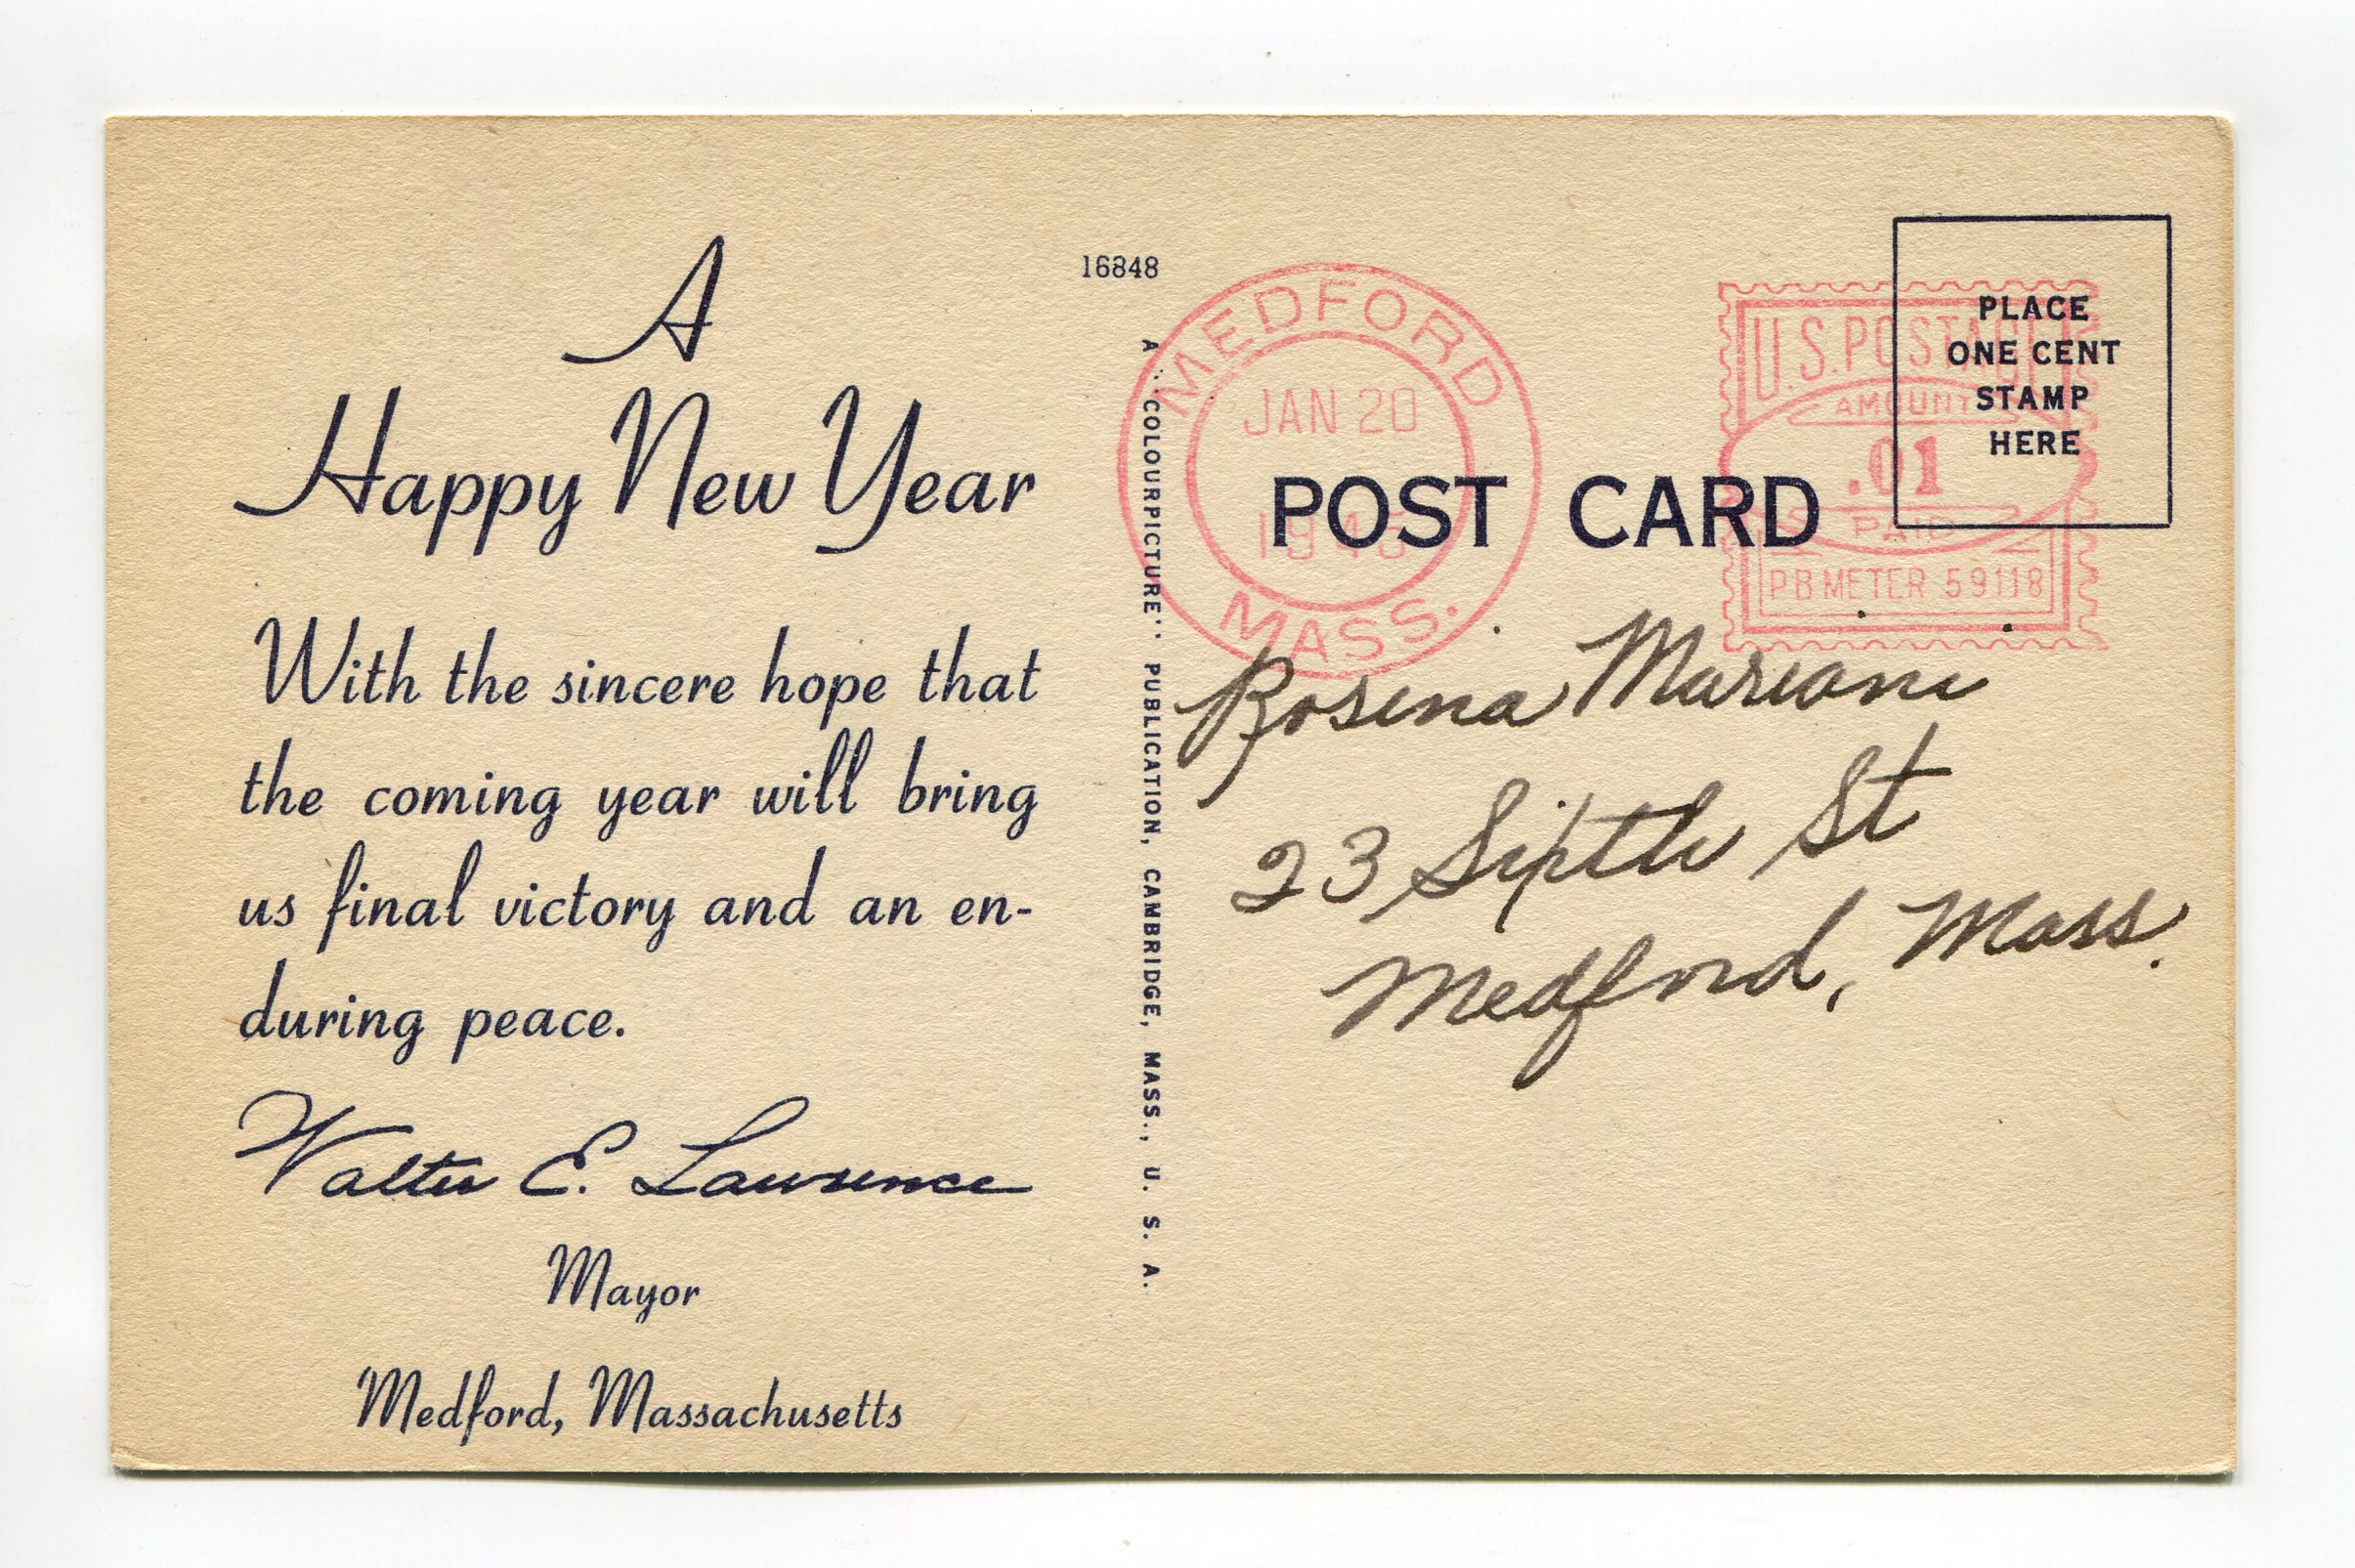 A
Happy New Year
With the sincere hope that
the coming year will bring
us final victory and an en-
during peace.
Walter E. Lawrence
Mayor
Medford, Massachusetts
16848
A "COLOURPICTURE" PUBLICATION, CAMBRIDGE, MASS., U. S. A.
MEDFORD
JAN 20
MASS.
POST CARD
U.S. POSTAGE
AMOUNT
.01
PAID
PB METER 59118
PLACE
ONE CENT
STAMP
HERE
Rosina Mariani
23 Sixth St
Medford, Mass.